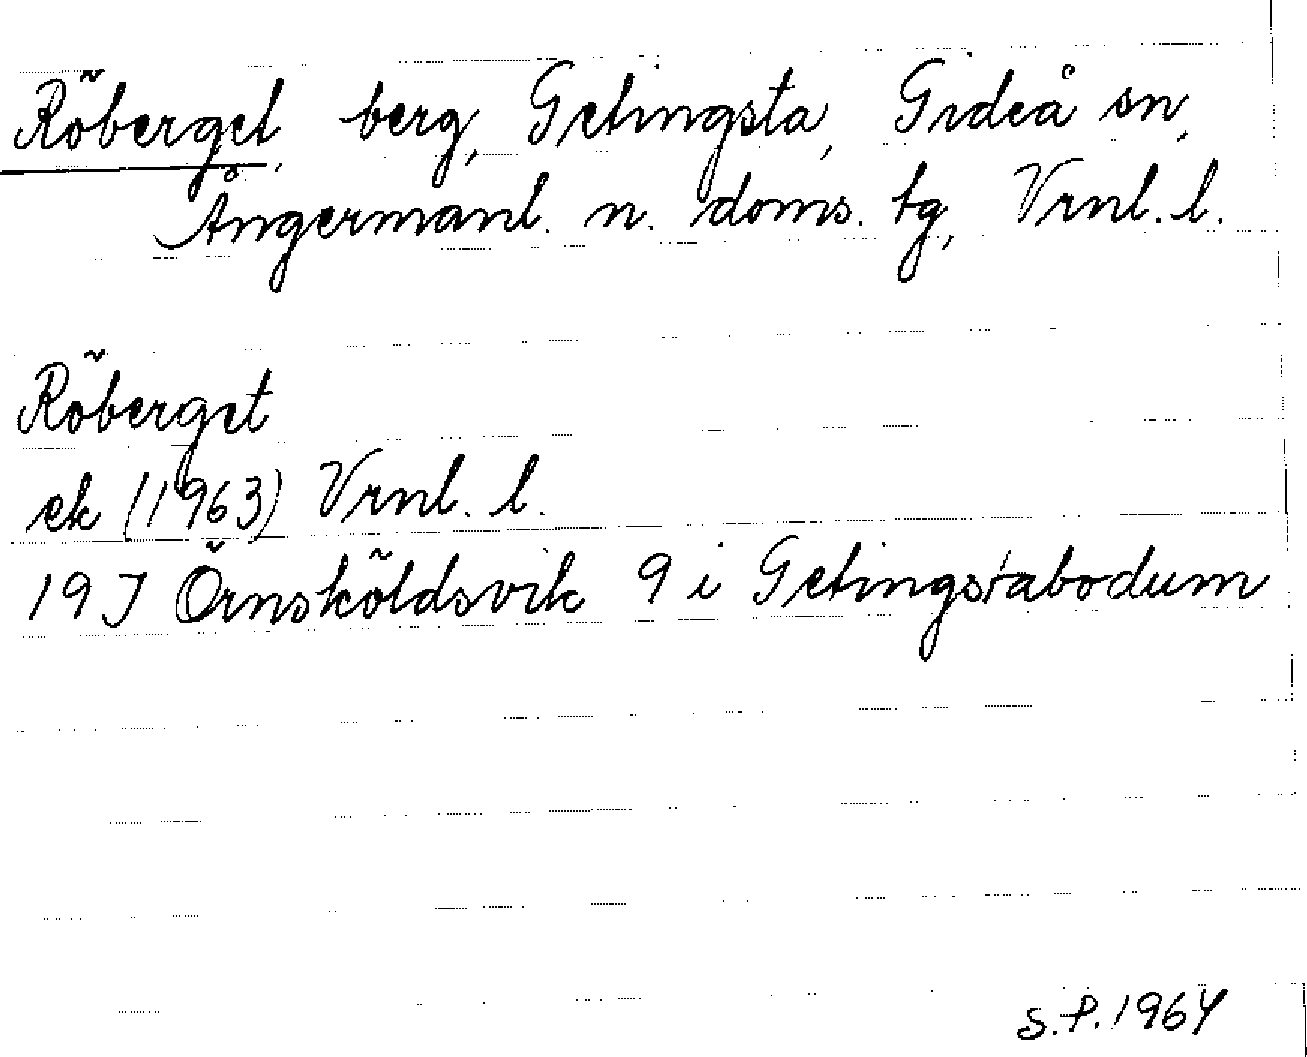 Röberget, berg, Getingsta, Gideå sn,
Ångermanl. n. doms. tg, Vrnl. l.
Röberget
ek (1963) Vrnl. l.
19J Örnsköldsvik 9 i Getingstabodum
S.P. 1964